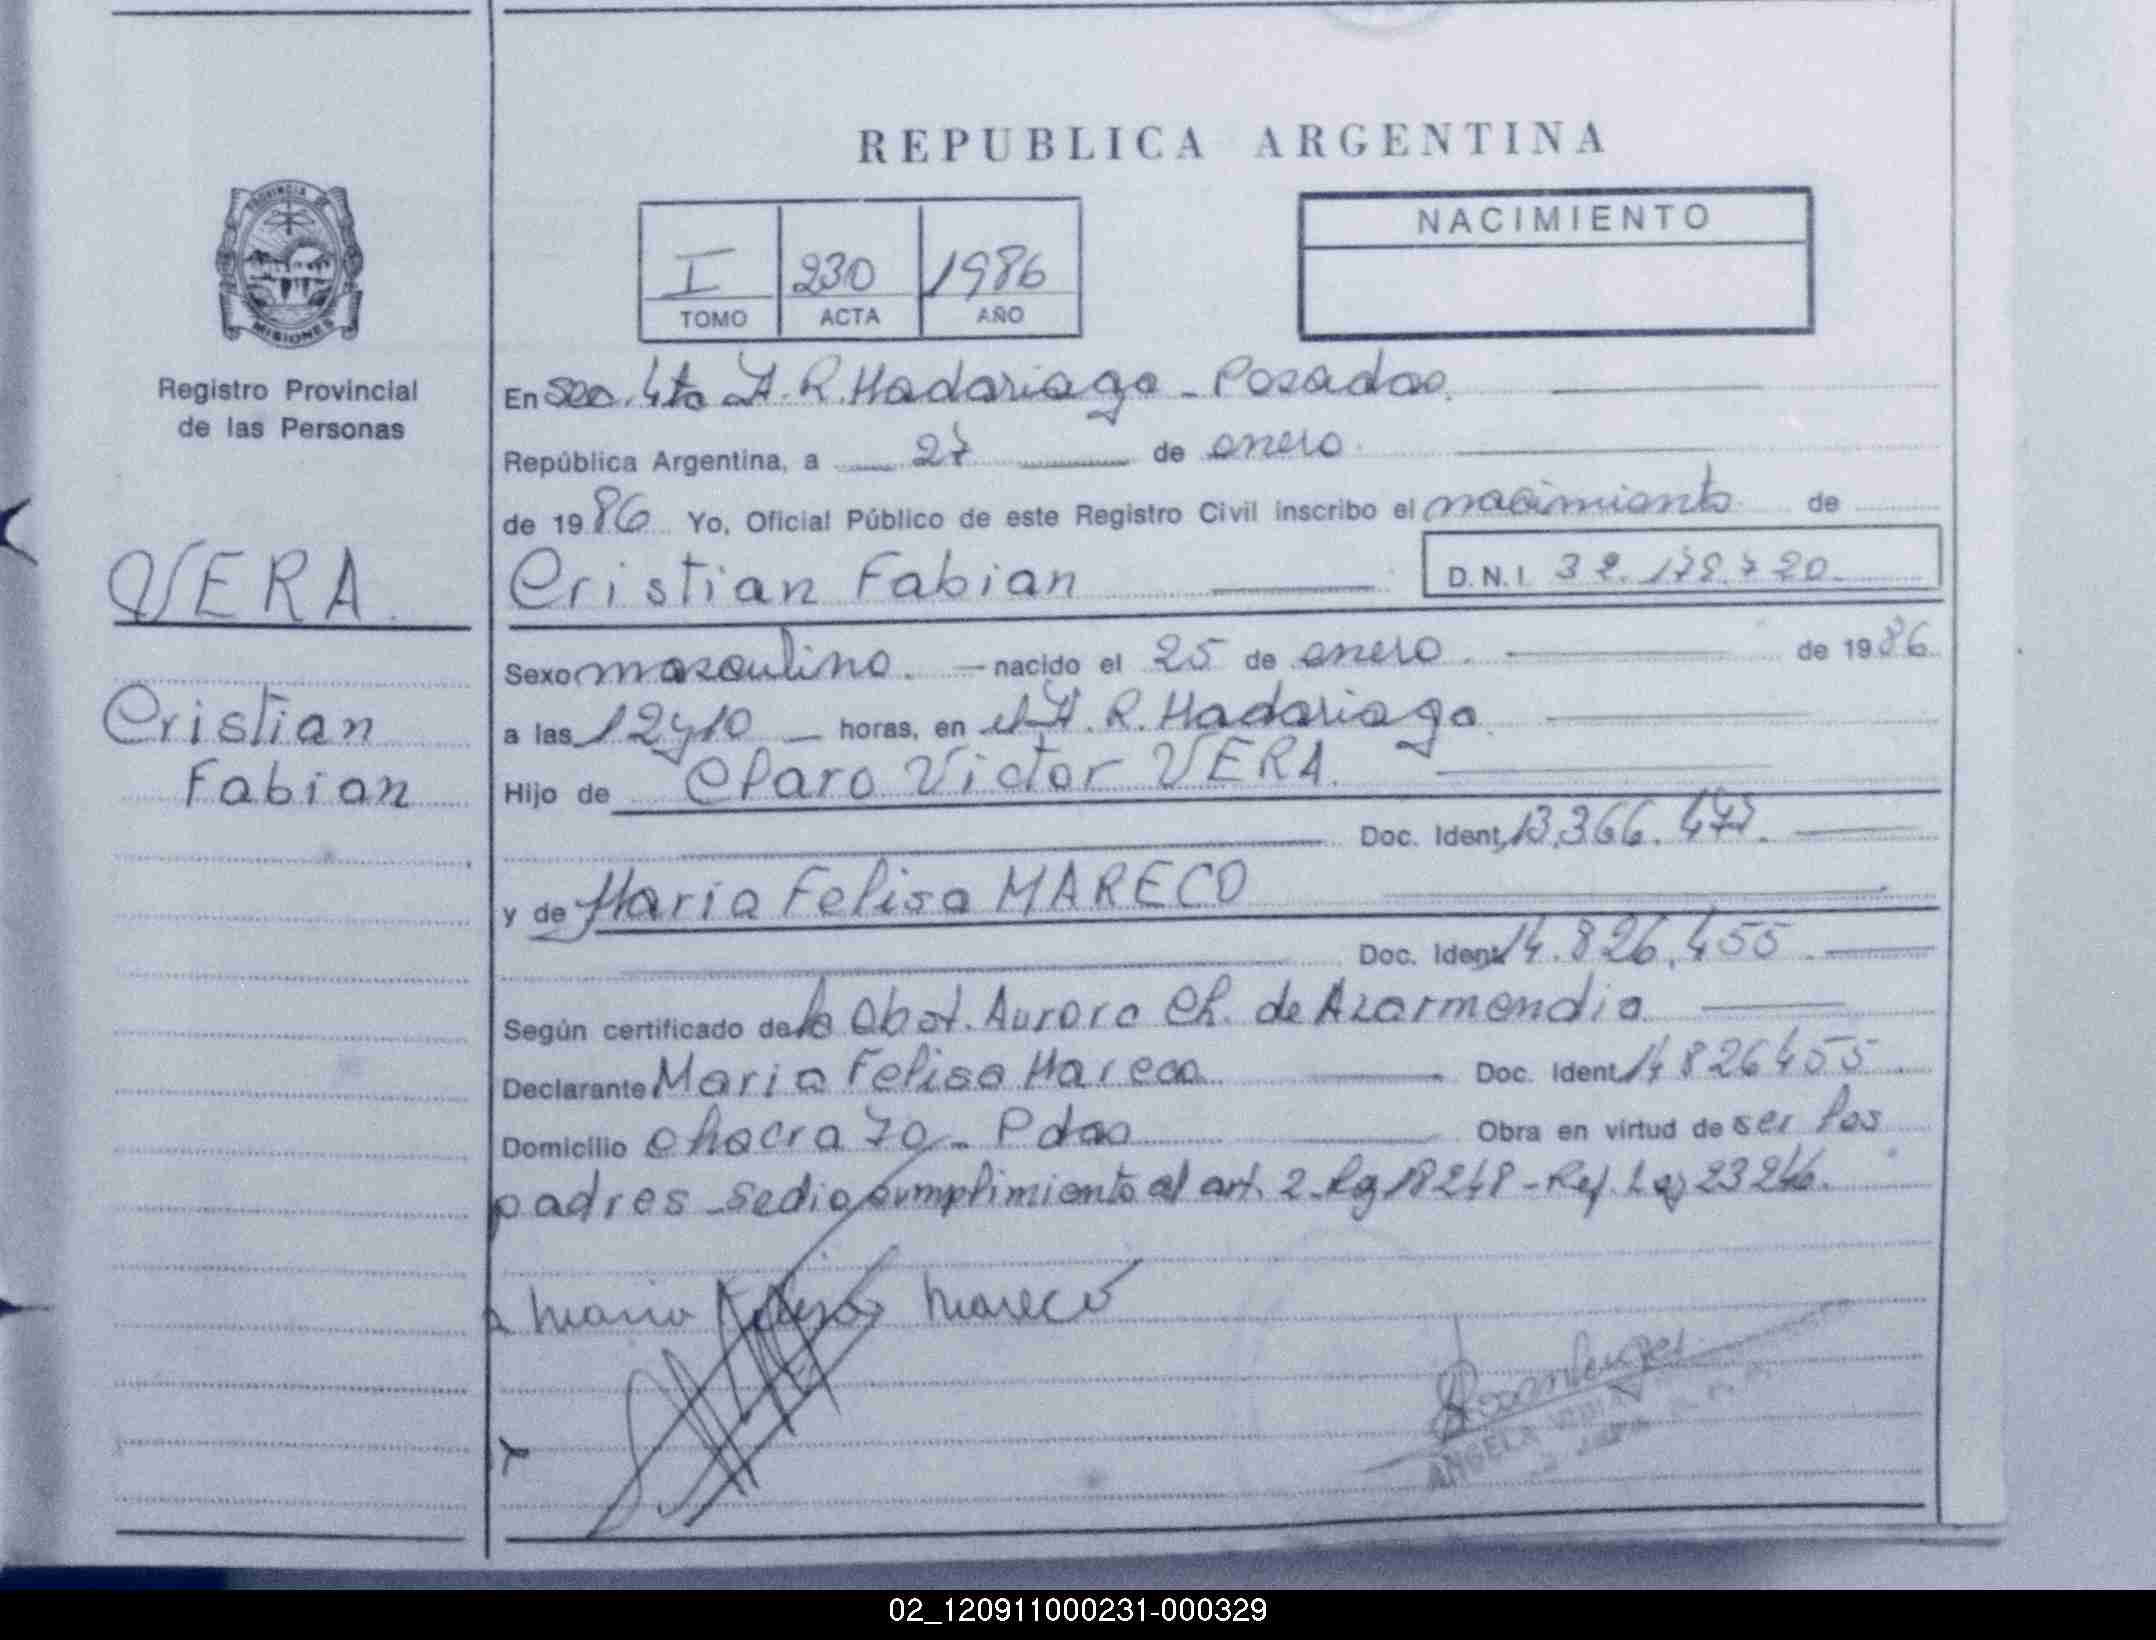 REPUBLICA ARGENTINA
PROVINCIA DE
MISIONES
Registro Provincial
de las Personas
I 230 1986
TOMO ACTA AÑO
NACIMIENTO
En Sec. 4ta H. R. Madariaga - Posadas.
República Argentina, a 27 de enero
de 1986 Yo, Oficial Público de este Registro Civil inscribo el nacimiento de
VERA.
Cristian Fabian
D.N.I. 32.178.720
Sexo masculino. nacido el 25 de enero. de 1986
Cristian
Fabian
a las 12 y 10 horas, en el H. R. Madariaga
Hijo de Claro Victor VERA.
Doc. Ident. 13.366.477.
y de Maria Felisa MARECO
Doc. Ident. 14.826.455
Según certificado de la Obst. Aurora Ch. de Azarmendia
Declarante Maria Felisa Mareco Doc. Ident. 14826455
Domicilio chacra 70 - Pdas Obra en virtud de ser los
padres - se dio cumplimiento al art. 2 - Ley 18248 - Ref. Ley 23246.
Maria Felisa Mareco
ANGELA
02_120911000231-000329